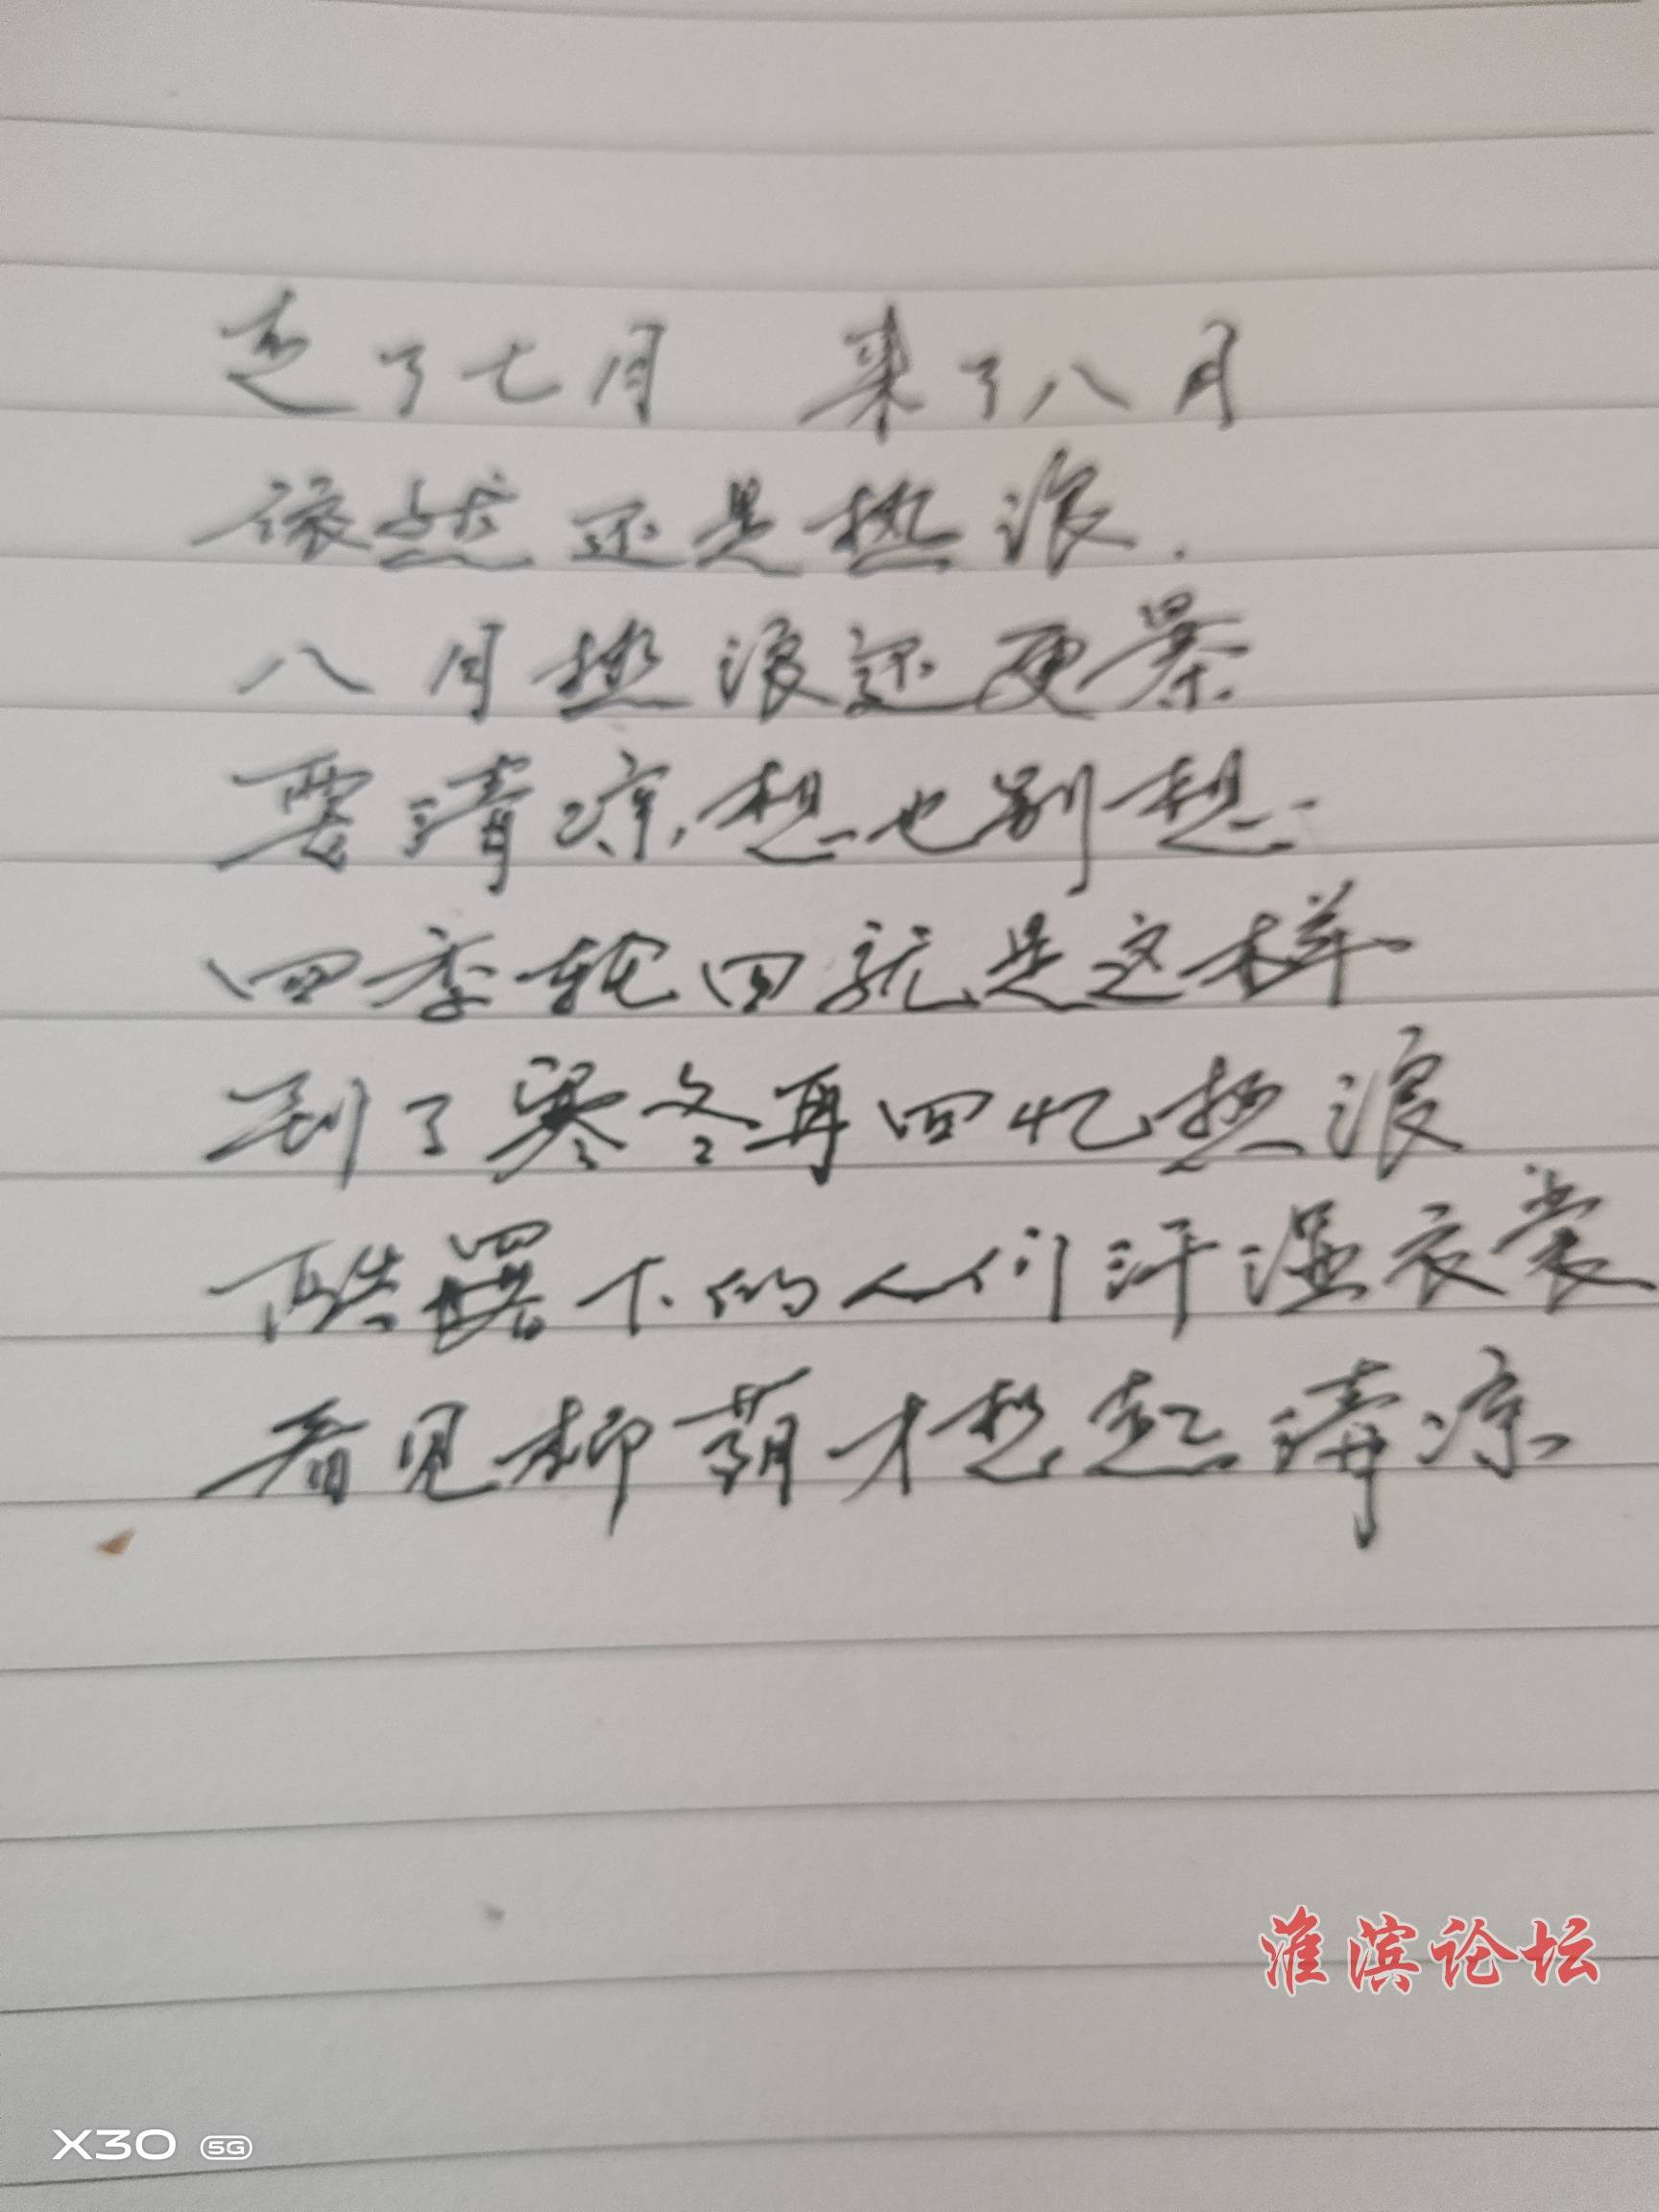 走了七月 来了八月
依然还是热浪.
八月热浪还更暴
要清凉,想也别想
四季轮回就是这样
到了寒冬再回忆热浪
酷暑下的人们汗湿衣裳
看见柳 才想起清凉
淮滨论坛
X30 5G